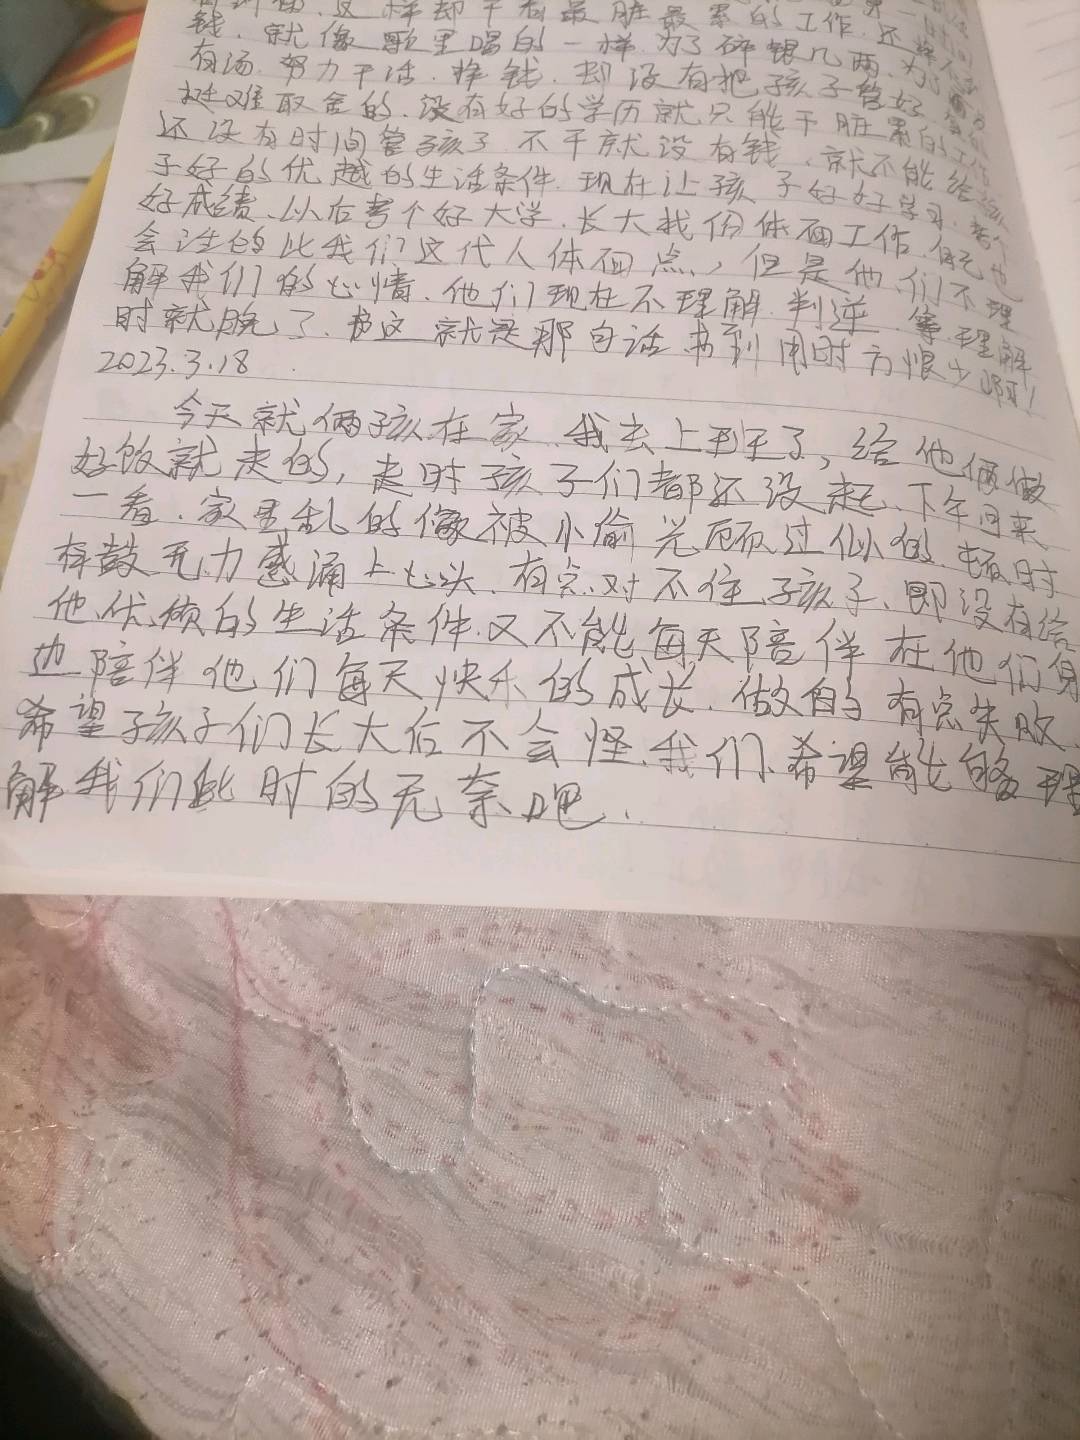 这样却干着最脏最累的工作,还挣不
钱,就像歌里唱的一样,为了碎银几两,为了
有汤,努力干活,挣钱,却没有把孩子管好,
难取舍的,没有好的学历就只能干脏累的工作
还没有时间管孩子,不干就没有钱,就不能给孩
子好的优越的生活条件.现在让孩子好好学习,考个
好成绩、以后考个好大学,长大找份体面工作,
会活的比我们这代人体面点,但是他们不理
解我们的心情,他们现在不理解,判逆,等理解
时就晚了,这就是那句话书到用时方恨少啊!
2023.3.18
今天就俩孩在家,我去上班了,给他俩做
好饭就走的,走时孩子们都还没起、下午回来
一看,家里乱的像被小偷光顾过似的,顿时
有鼓无力感涌上心头,有点对不住孩子、即没有给
他优倾的生活条件,又不能每天陪伴在他们身
边陪伴他们每天快乐的成长,做的有点失败、
希望孩子们长大后不会怪我们、希望能够理
解我们此时的无奈吧.